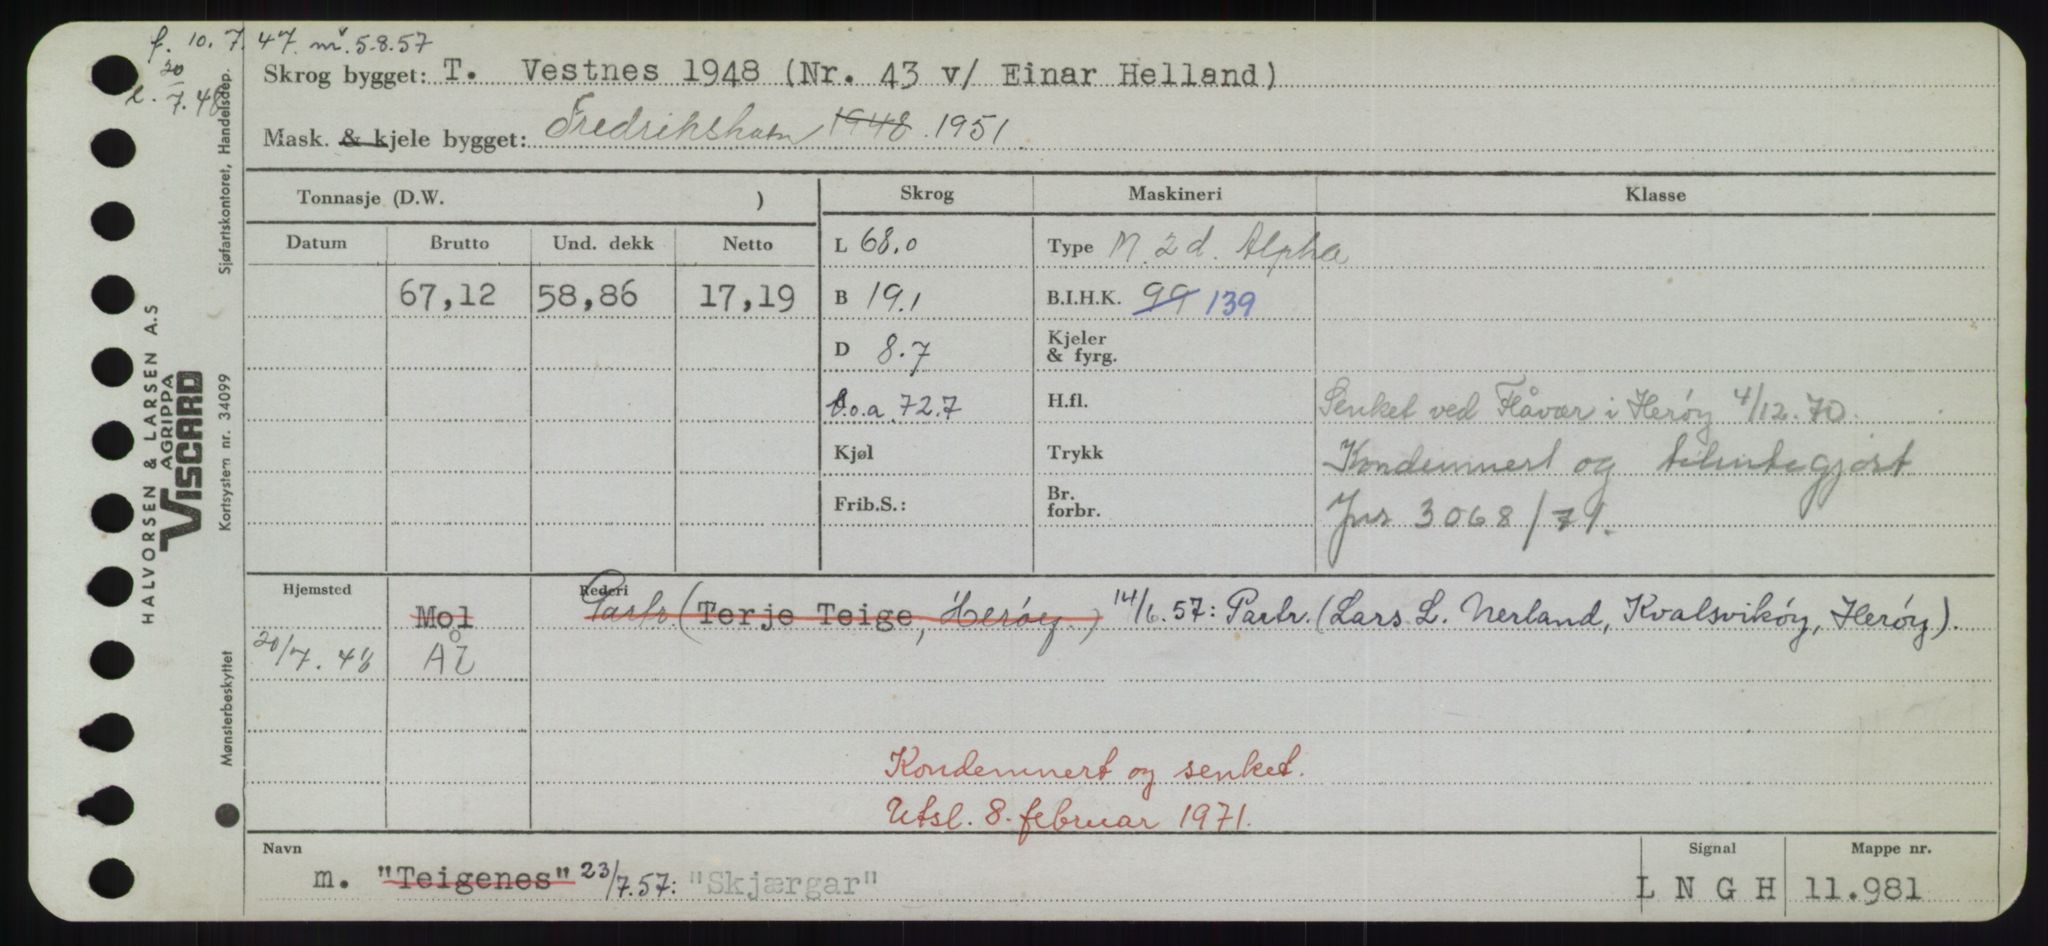 f. 10.7.47. m. 5.8.57
20
7.48
Skrog bygget: T. Vestnes 1948 (Nr. 43 v/ Einar Helland)
Mask. & kjele bygget: Fredrikshavn 1948. 1951
Tonnasje (D.W. )
Skrog Maskineri Klasse
Datum Brutto Und. dekk Netto
L 68.0 Type M. 2 d. Alpha
67,12 58,86 17,19 B 19.1 B.I.H.K. 99 139
D 8.7 Kjeler & fyrg.
l.o.a. 72.7 H.fl. Senket ved Flåvær i Herøy 4/12.70.
Kjøl Trykk Kondemnert og tilintegjort
Frib.S.: Br. forbr. Jnr 3068/71.
Hjemsted Rederi
Mol Partr (Terje Teige, Herøy.) 14/6.57: Partr. (Lars L. Nerland, Kvalsvikøy, Herøy).
20/7.48 Ål
Kondemnert og senket.
Utsl. 8. februar 1971.
Navn Signal Mappe nr.
m. "Teigenes" 23/7.57: "Skjærgar" L N G H 11.981
HALVORSEN & LARSEN A.S
AGRIPPA
VISCARD
Kortsystem nr. 34099
Sjøfartskontoret, Handelsdep.
Mønsterbeskyttet